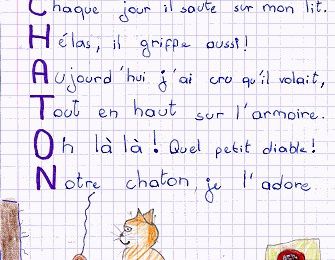 Chaque jour il saute sur mon lit.
Hélas, il griffe aussi!
Aujourd'hui j'ai cru qu'il volait,
Tout en haut sur l'armoire.
Oh là là! Quel petit diable!
Notre chaton, je l'adore